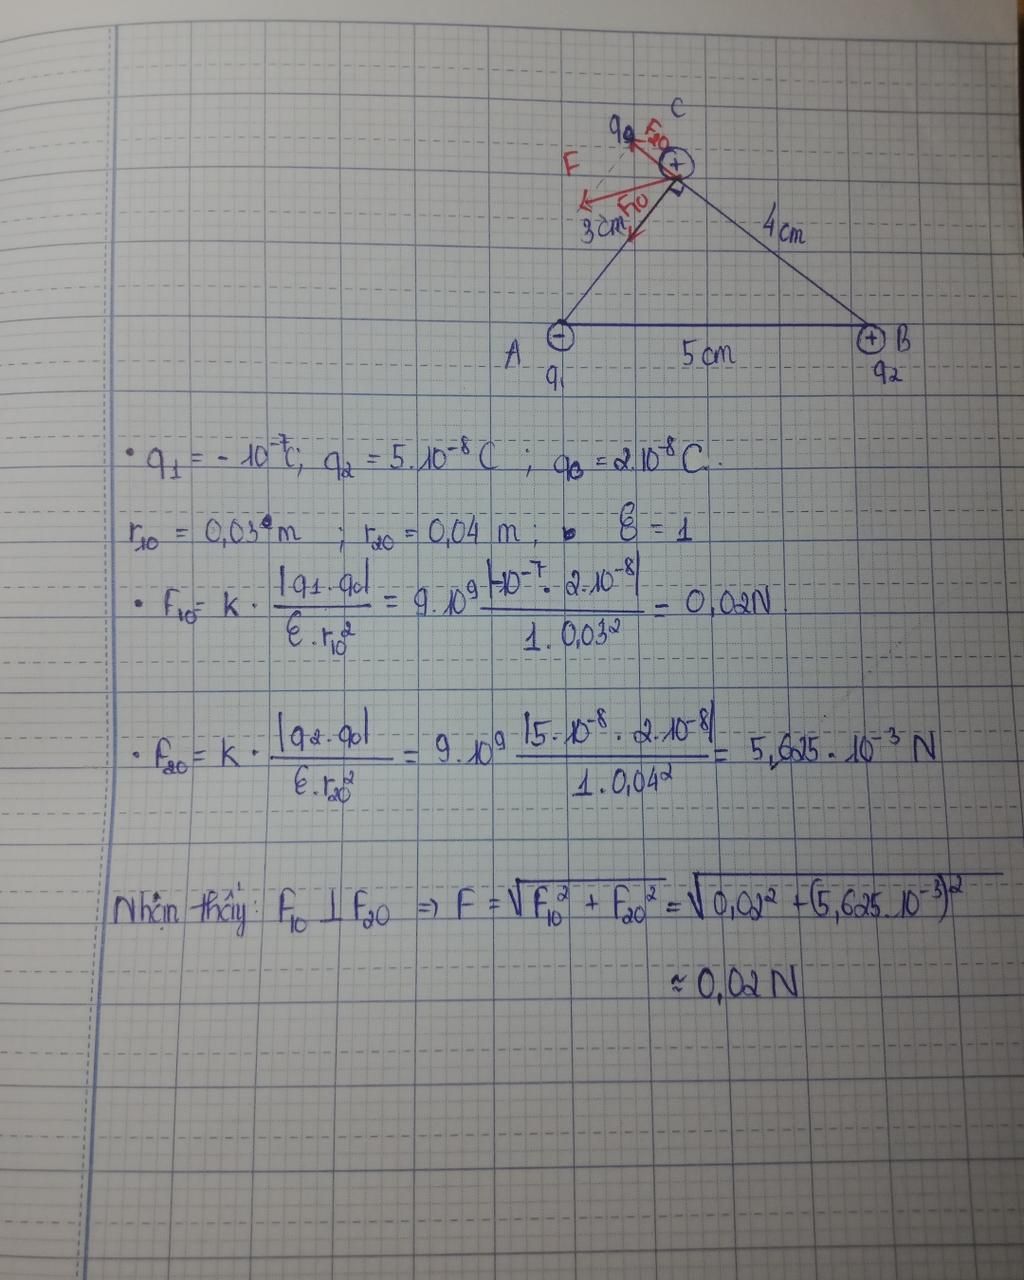 C
q₀ F₂₀
+
F
F₁₀
3cm
4cm
A - 5cm + B
q₁ q₂
• q₁ = - 10⁻⁷C; q₂ = 5.10⁻⁸ C ; q₀ = 2.10⁻⁸ C.
r₁₀ = 0,03 m ; r₂₀ = 0,04 m ; ε = 1
• F₁₀ = k . |q₁.q₀| / ε.r₁₀² = 9.10⁹ |-10⁻⁷. 2.10⁻⁸| / 1. 0,03² = 0,02N
• F₂₀ = k . |q₂.q₀| / ε.r₂₀² = 9.10⁹ |5.10⁻⁸ . 2.10⁻⁸| / 1. 0,04² = 5,625. 10⁻³ N
Nhận thấy: F₁₀ ⊥ F₂₀ => F = √(F₁₀² + F₂₀²) = √(0,02² + (5,625.10⁻³)²)
≈ 0,02 N